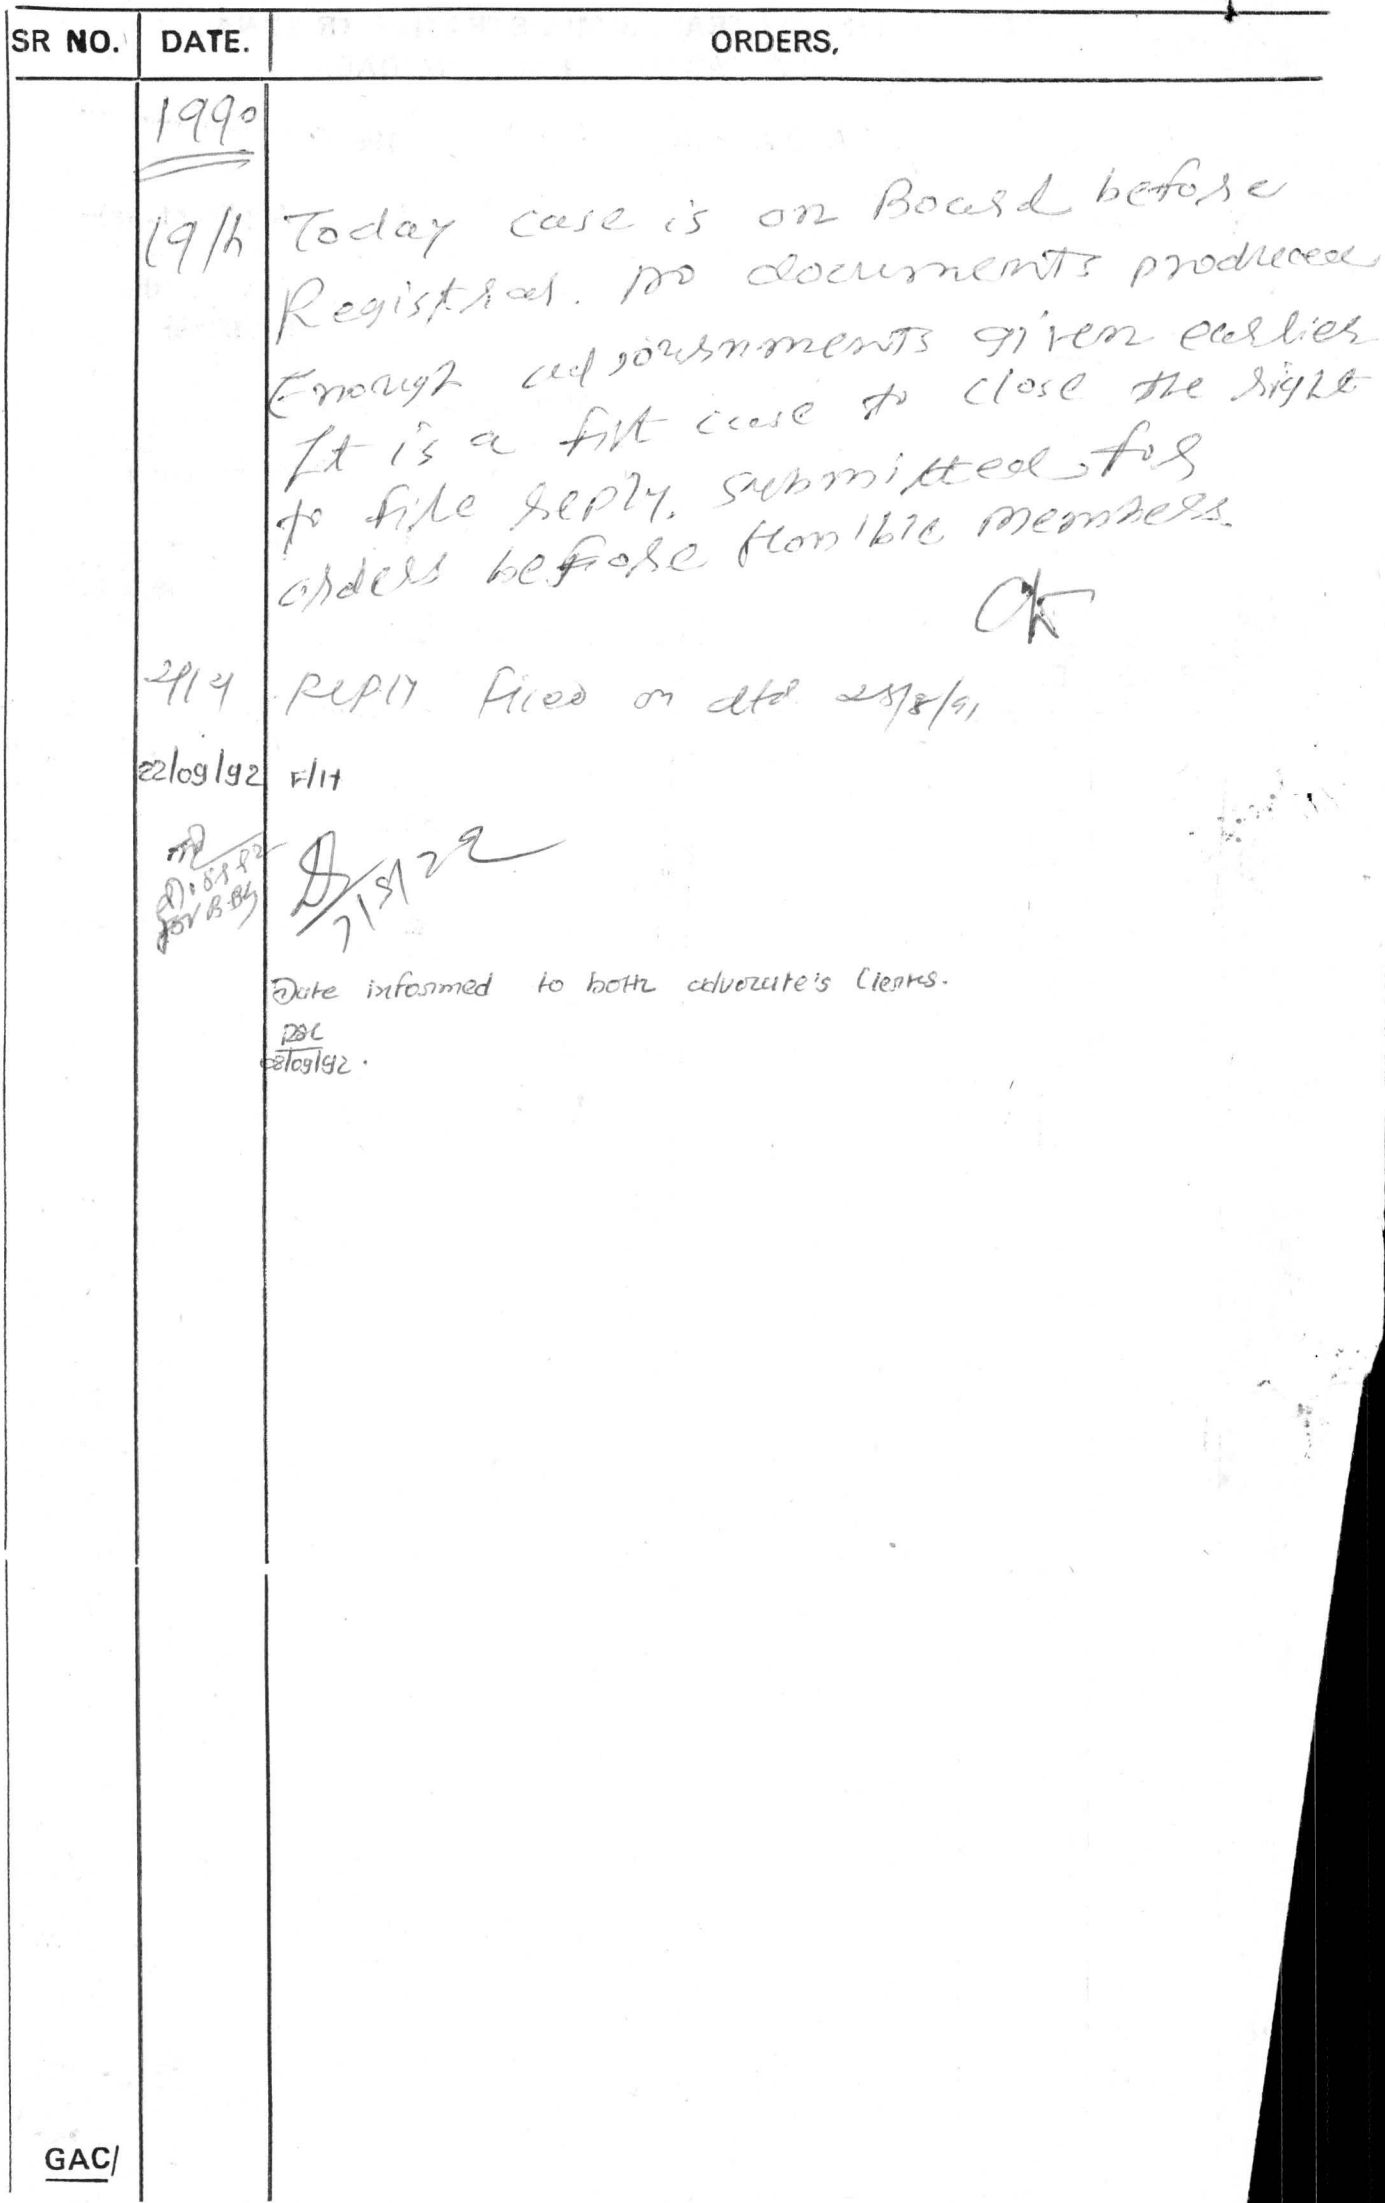 SR NO. DATE. ORDERS,
1990
Today case is on Board before
Registrar. no documents produced
Enough adjournments given earlier
It is a fitt case to close the right
to file reply. submitted for
orders before Hon'ble members.
Reply filed on dtd 28/8/91
22/09/92 F/H
Date informed to both advocate's Clerks.
08/09/92.
GAC/